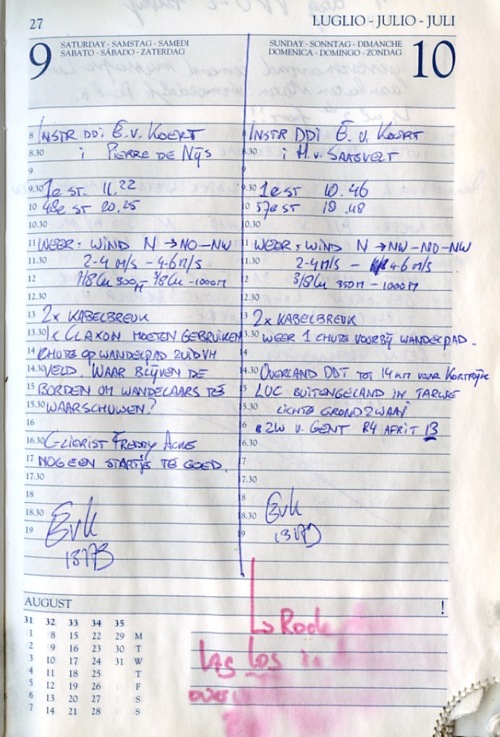 27
LUGLIO - JULIO - JULI
9
SATURDAY - SAMSTAG - SAMEDI
SABATO - SÁBADO - ZATERDAG
8 INSTR DDI E. v. KOERT
8.30 i PIERRE DE NIJS
9
9.30 1e ST 11.22
10 48e ST 20.25
10.30
11 WEER: WIND N → NO-NW
11.30 2-4 M/S - 4-6 M/S
12 1/8 Cu 800m 3/8 Cu -1000M
12.30
13 2x KABELBREUK
13.30 1x CLAXON MOETEN GEBRUIKEN
14 CHUTE OP WANDELPAD ZUID VH
14.30 VELD. WAAR BLIJVEN DE
15 BORDEN OM WANDELAARS TE
15.30 WAARSCHUWEN?
16
16.30 GLIERIST FREDDY
17 NOG EEN STARTJE TE GOED.
17.30
18
18.30 EvK
19 1373
SUNDAY - SONNTAG - DIMANCHE
DOMENICA - DOMINGO - ZONDAG
10
8 INSTR DDI E. v. KOERT
8.30 i H.v. SANTVELT
9
9.30 1e ST 10.46
10 57e ST 19.48
10.30
11 WEER: WIND N → NW-NO-NW
11.30 2-4 M/S - 4-6 M/S
12 3/8 Cu 850M - 1000M
12.30
13 2x KABELBREUK
13.30 WEER 1 CHUTE VOORBIJ WANDELPAD.
14
14.30 OVERLAND DDT TOT 14 KM VOOR KORTRIJK
15 LUC BUITENGELAND IN TARWE
15.30 LICHTE GRONDZWAAI
16 ZW v. GENT R4 AFRIT 13
16.30
17
17.30
18
18.30 EvK
19 1373
AUGUST
31 32 33 34 35
1 8 15 22 29 M
2 9 16 23 30 T
3 10 17 24 31 W
4 11 18 25 T
5 12 19 26 F
6 13 20 27 S
7 14 21 28 S
!
↳ Rode
LAS LOS